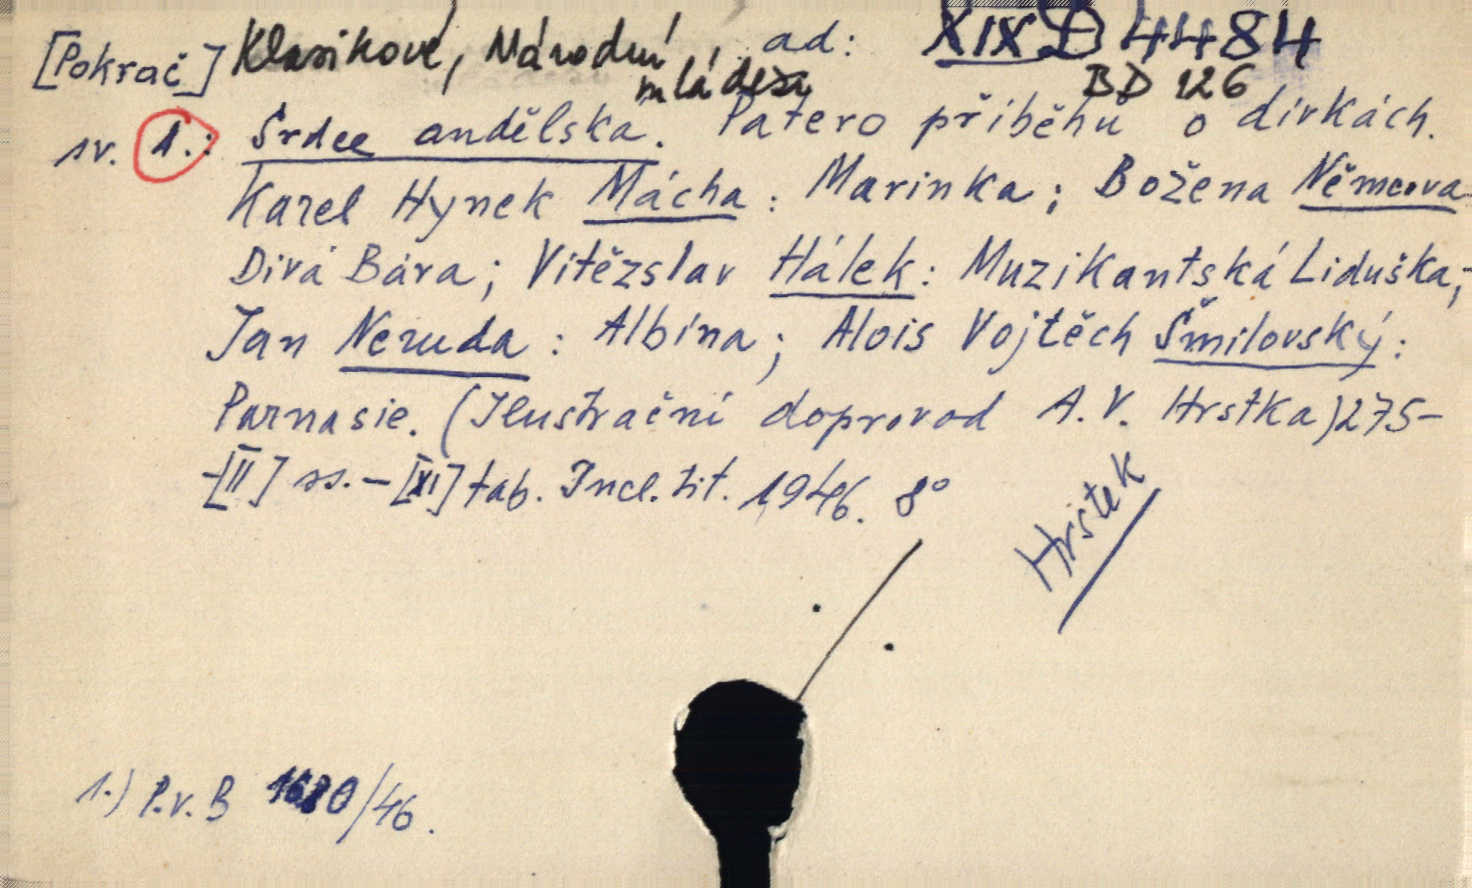 [Pokrač] Klasikové, Národní ad: XIX D 4484
mládeže BD 126
sv. 1.: Srdce andělská. Patero příběhů o dívkách.
Karel Hynek Mácha: Marinka; Božena Němcová
Divá Bára; Vítězslav Hálek: Muzikantská Liduška;
Jan Neruda: Albína; Alois Vojtěch Šmilovský:
Parnasie. (Ilustrační doprovod A. V. Hrstka) 275-
-[II] ss. - [XI] tab. Incl. tit. 1946. 8°
Hrstek
1.) P.v.B /46.